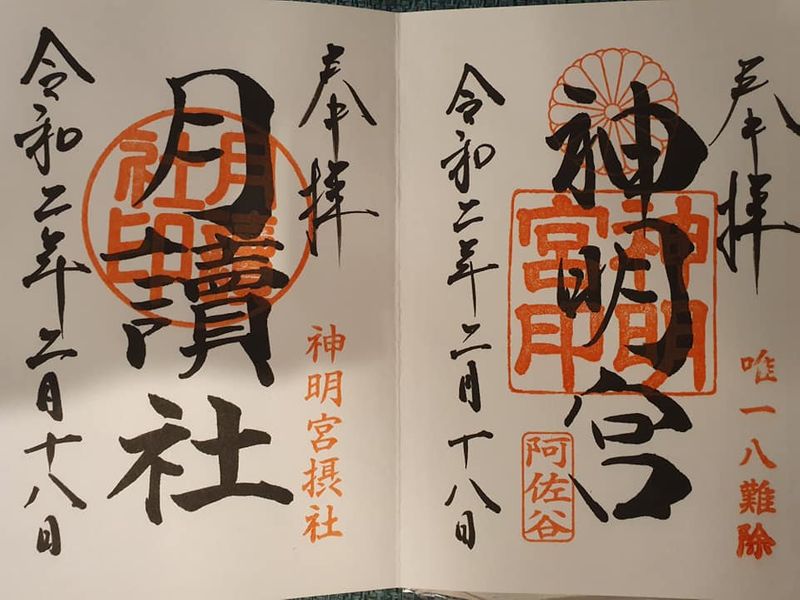 奉拝
唯一八難除
神明宮
神明宮印
阿佐谷
令和二年二月十八日
奉拝
神明宮摂社
月讀社
月讀社印
令和二年二月十八日